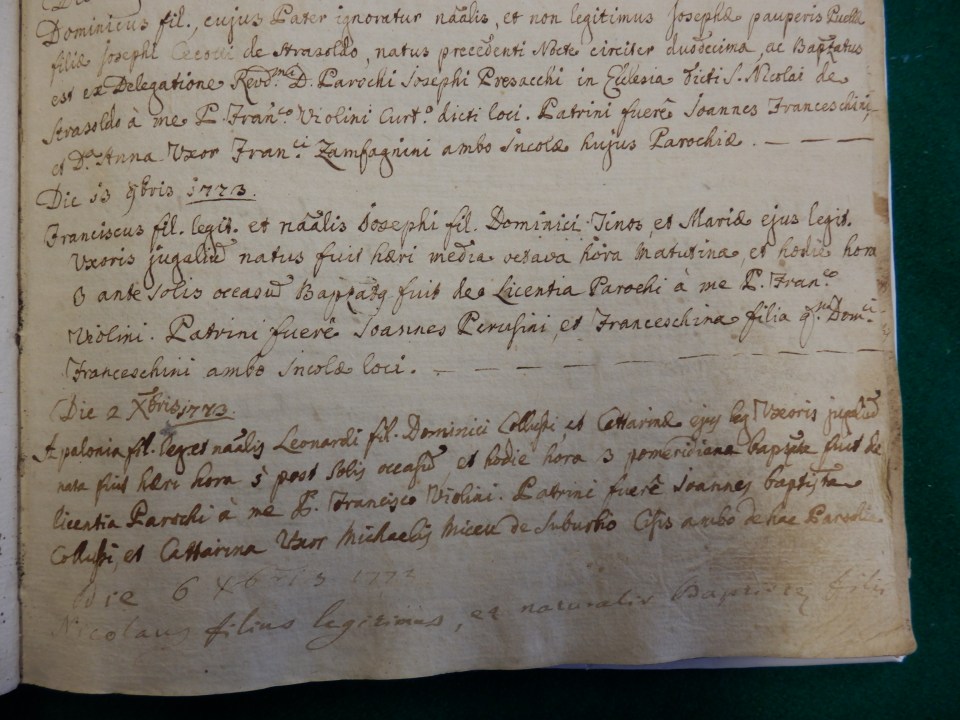 Dominicus fil., cujus Pater ignoratur nãalis, et non legitimus Josephæ pauperis Puellæ
filiæ Josephi de Strasoldo, natus precedenti Nocte circiter duodecima, ac Bapzatus
est ex Delegatione Revd.mi D. Parochi Josephi Presacchi in Ecclesia dicti S. Nicolai de
Strasoldo à me P. Fran.co Violini Curt.o dicti loci. Patrini fuerẽ Joannes Franceschini,
et D.a Anna Uxor Fran.ci Zamfagnini ambo Incolæ hujus Parochiæ. — — —
Die 13 9bris 1773.
Franciscus fil. legit. et nãalis Josephi fil. Dominici et Mariæ ejus legit.
Uxoris jugaliũ natus fuit hæri media octava hora matutina, et hodie hora
3 ante Solis occasũ fuit de Licentia Parochi à me P. Fran.co
Violini. Patrini fuerẽ Joannes Perusini, et Franceschina filia q.m Dom.ci
Franceschini ambo Incolæ loci. — — — — — — — — — — —
Die 2 Xbris 1773.
Apalonia fil. leg. et nãalis Leonardi fil. Dominici Collussi, et Cattarinæ ejus leg. Uxoris jugaliũ
nata fuit hæri hora 5 post Solis occasũ et hodie hora 3 pomeridiana fuit de
licentia Parochi à me P. Francisco Violini. Patrini fuerẽ Joannes baptista
Collussi, et Cattarina Uxor Michaelis Miceu de Suburbio ambo de hac Parochia
Die 6 Xbris 177
Nicolaus filius legitimus, et naturalis Baptistæ filii